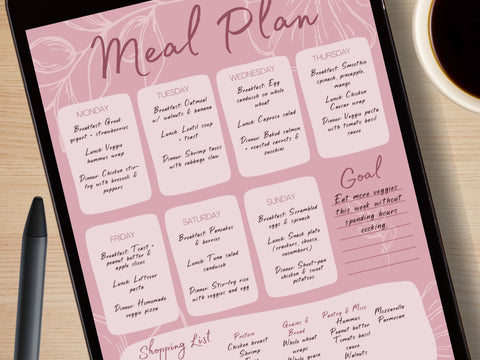 Meal Plan
MONDAY
Breakfast: Greek
yogurt + strawberries
Lunch: Veggie
hummus wrap
Dinner: Chicken stir-
fry with broccoli &
peppers
TUESDAY
Breakfast: Oatmeal
w/ walnuts & banana
Lunch: Lentil soup
+ toast
Dinner: Shrimp tacos
with cabbage slaw
WEDNESDAY
Breakfast: Egg
sandwich on whole
wheat
Lunch: Caprese salad
Dinner: Baked salmon
+ roasted carrots &
zucchini
THURSDAY
Breakfast: Smoothie
spinach, pineapple,
mango
Lunch: Chicken
Caesar wrap
Dinner: Veggie pasta
with tomato basil
sauce
FRIDAY
Breakfast: Toast +
peanut butter &
apple slices
Lunch: Leftover
pasta
Dinner: Homemade
veggie pizza
SATURDAY
Breakfast: Pancakes
& berries
Lunch: Tuna salad
sandwich
Dinner: Stir-fry rice
with veggies and egg
SUNDAY
Breakfast: Scrambled
eggs & spinach
Lunch: Snack plate
(crackers, cheese,
cucumbers)
Dinner: Sheet-pan
chicken & sweet
potatoes
Goal
Eat more veggies
this week without
spending hours
cooking.
Shopping List
Protein
Chicken breast
Shrimp
Grains &
Bread
Whole wheat
wraps
Whole grain
Pantry & Misc
Hummus
Peanut butter
Tomato basil
sauce
Walnuts
Mozzarella
Parmesan